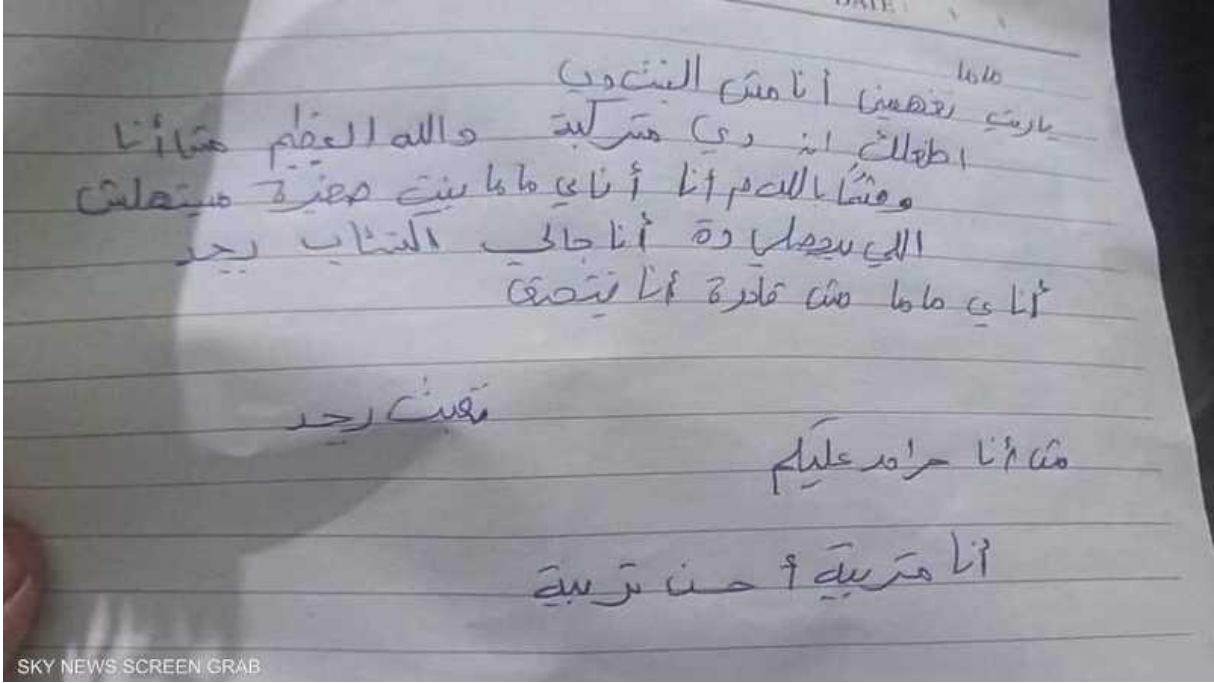 DATE:
ماما
ياريت تفهميني أنا مش البنت دي
ان دي متركبة والله العظيم مش أنا
وقسمًا بالله م أنا أنا يا ماما بنت صغيرة مستهلش
اللي بيحصلي دة أنا جالي اكتئاب بجد
أنا يا ماما مش قادرة أنا بتخنق
تعبت بجد
مش أنا حرام عليكم
أنا متربية أحسن تربية
SKY NEWS SCREEN GRAB